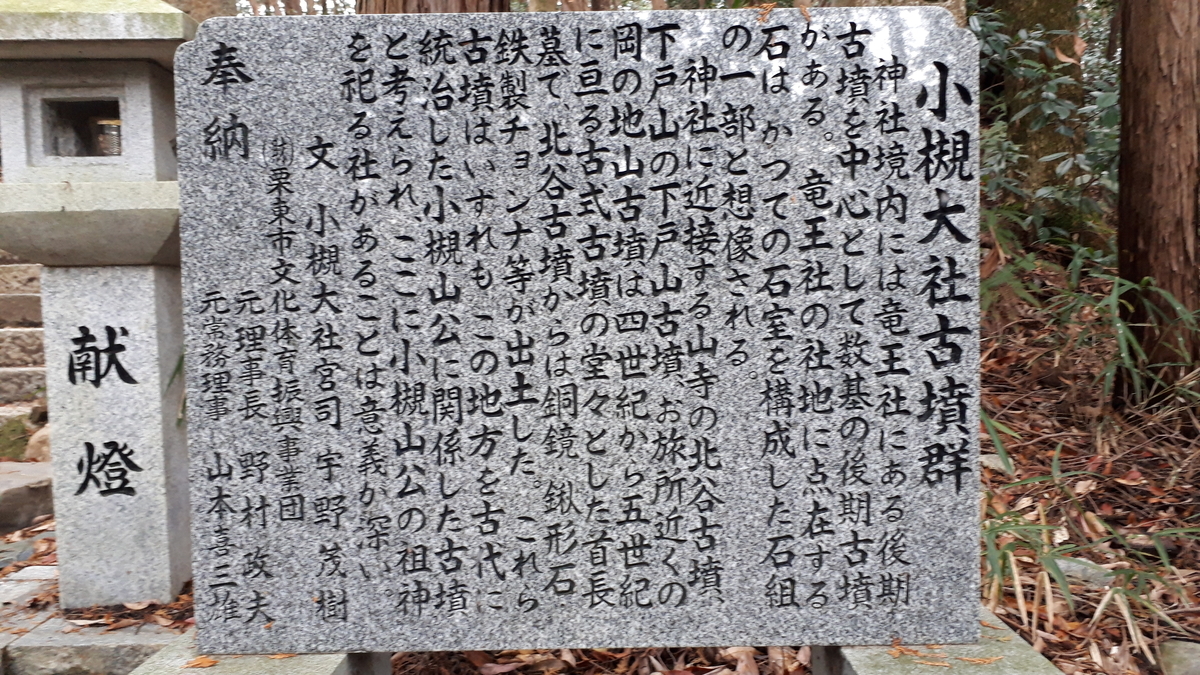 小槻大社古墳群
神社境内には竜王社にある後期
古墳を中心として数基の後期古墳
がある。竜王社の社地に点在する
石はかつての石室を構成した石組
の一部と想像される。
神社に近接する山寺の北谷古墳、
下戸山の下戸山古墳、お旅所近くの
岡の地山古墳は四世紀から五世紀
に亘る古式古墳の堂々とした首長
墓で、北谷古墳からは銅鏡、鍬形石
鉄製チョンナ等が出土した。これら
古墳はいずれも この地方を古代に
統治した小槻山公に関係した古墳
と考えられ、ここに小槻山公の祖神
を祀る社があることは意義が深い。
文 小槻大社宮司 宇野茂樹
㈶栗東市文化体育振興事業団
元理事長 野村政夫
元常務理事 山本喜三雄
奉納
献燈